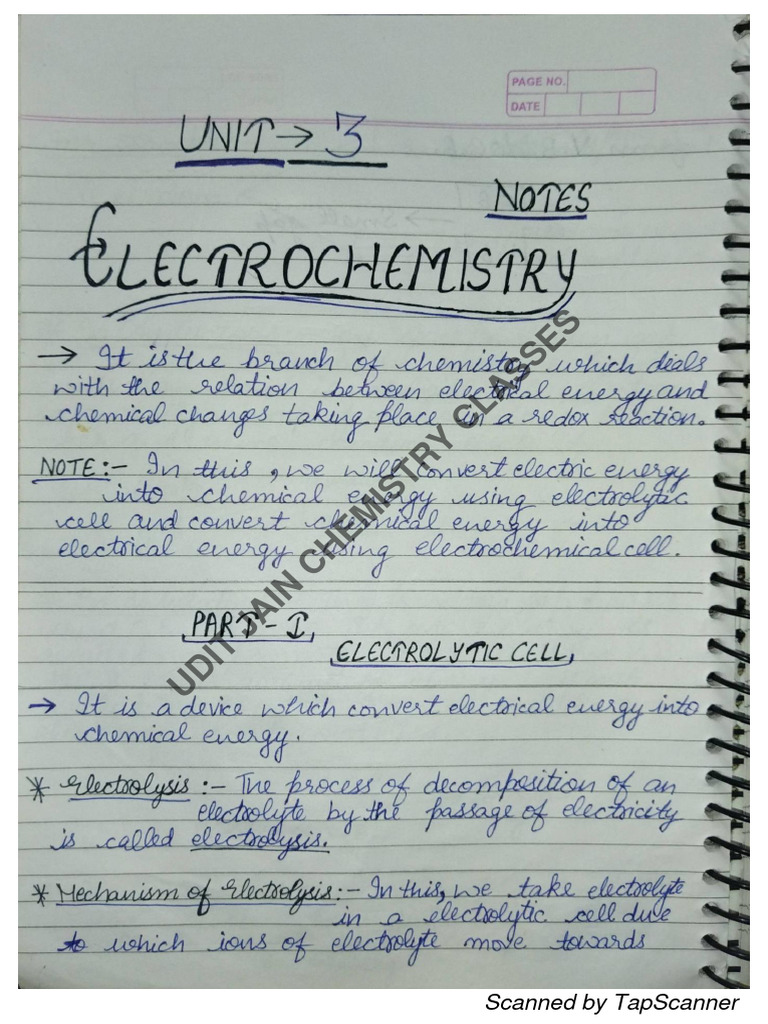 PAGE NO.
DATE
UNIT → 3
NOTES
ELECTROCHEMISTRY
→ It is the branch of chemistry which deals
with the relation between electrical energy and
chemical changes taking place in a redox reaction.
NOTE:- In this, we will convert electric energy
into chemical energy using electrolytic
cell and convert chemical energy into
electrical energy using electrochemical cell.
PART-I
ELECTROLYTIC CELL
→ It is a device which convert electrical energy into
chemical energy.
* Electrolysis :- The process of decomposition of an
electrolyte by the passage of electricity
is called electrolysis.
* Mechanism of Electrolysis:- In this, we take electrolyte
in a electrolytic cell due
to which ions of electrolyte move towards
UDIT JAIN CHEMISTRY CLASSES
Scanned by TapScanner